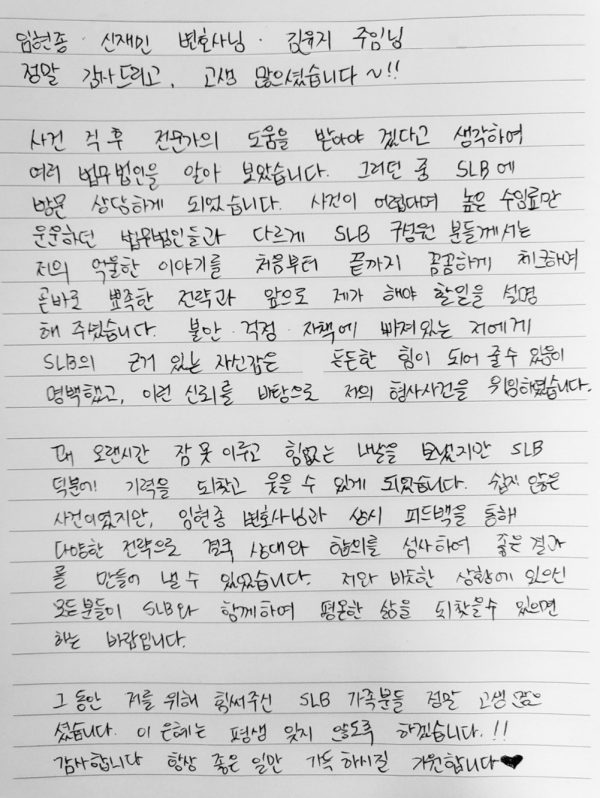 임현종 · 신재민 변호사님 · 김유지 주임님
정말 감사드리고, 고생 많으셨습니다~!!
사건 직후 전문가의 도움을 받아야 겠다고 생각하여
여러 법무법인을 알아 보았습니다. 그러던 중 SLB에
방문 상담하게 되었습니다. 사건이 어렵다며 높은 수임료만
운운하던 법무법인들과 다르게 SLB 구성원 분들께서는
저의 억울한 이야기를 처음부터 끝까지 꼼꼼하게 체크하여
곧바로 뾰족한 전략과 앞으로 제가 해야 할일을 설명
해 주셨습니다. 불안·걱정·자책에 빠져있는 저에게
SLB의 근거 있는 자신감은 든든한 힘이 되어 줄수 있음이
명백했고, 이런 신뢰를 바탕으로 저의 형사사건을 위임하였습니다.
꽤 오랜시간 잠 못 이루고 힘없는 나날을 보냈지만 SLB
덕분에 기력을 되찾고 웃을 수 있게 되었습니다. 쉽지 않은
사건이였지만, 임현종 변호사님과 상시 피드백을 통해
다양한 전략으로 결국 상대와 합의를 성사하여 좋은 결과
를 만들어 낼 수 있었습니다. 저와 비슷한 상황에 있으신
모든분들이 SLB와 함께하여 평온한 삶을 되찾을수 있으면
하는 바람입니다.
그 동안 저를 위해 힘써주신 SLB 가족분들 정말 고생 많으
셨습니다. 이 은혜는 평생 잊지 않도록 하겠습니다.!!
감사합니다 항상 좋은 일만 가득 하시길 기원합니다♥